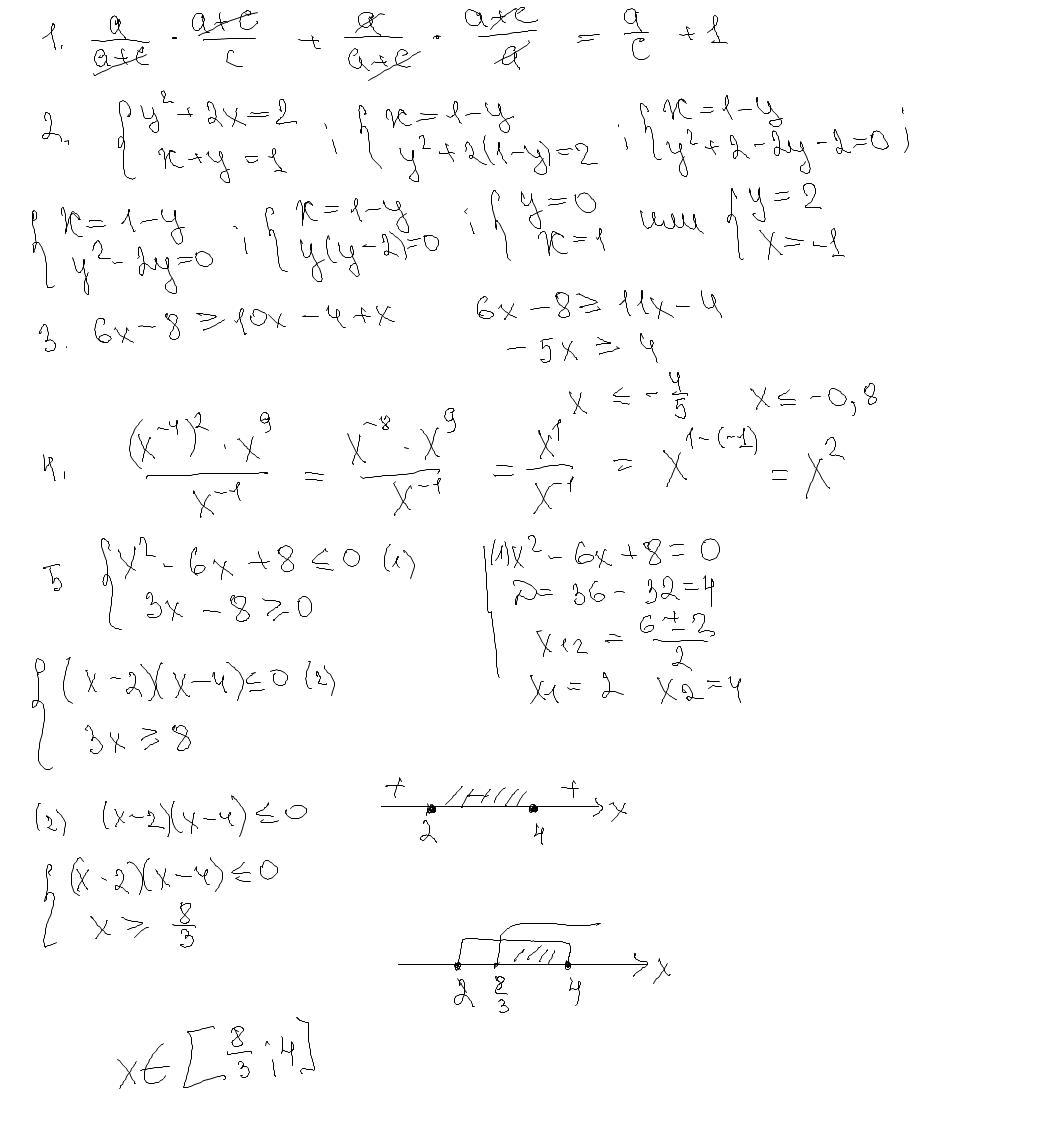 1. a/(a+c) · (a+c)/c + a/(a+c) · (a+c)/a = a/c + 1
2. { y² + 2x = 2 ; { x = 1 - y ; { x = 1 - y ;
x + y = 1 y² + 2(1-y) = 2 y² + 2 - 2y - 2 = 0
{ x = 1 - y ; { x = 1 - y ; { y = 0 или { y = 2
y² - 2y = 0 y(y-2) = 0 x = 1 x = -1
3. 6x - 8 ≥ 10x - 4 + x 6x - 8 ≥ 11x - 4
-5x ≥ 4
x ≤ -4/5 x ≤ -0,8
4. ((x⁻⁴)² · x⁹)/x⁻¹ = (x⁻⁸ · x⁹)/x⁻¹ = x¹/x⁻¹ = x^(1-(-1)) = x²
5 { x² - 6x + 8 ≤ 0 (1)
3x - 8 ≥ 0
(1) x² - 6x + 8 = 0
D = 36 - 32 = 4
x12 = (6 ± 2)/2
x1 = 2 x2 = 4
{ (x-2)(x-4) ≤ 0 (2)
3x ≥ 8
(2) (x-2)(x-4) ≤ 0
+ + x
2 4
{ (x-2)(x-4) ≤ 0
x ≥ 8/3
x
2 8/3 4
x ∈ [8/3 ; 4]